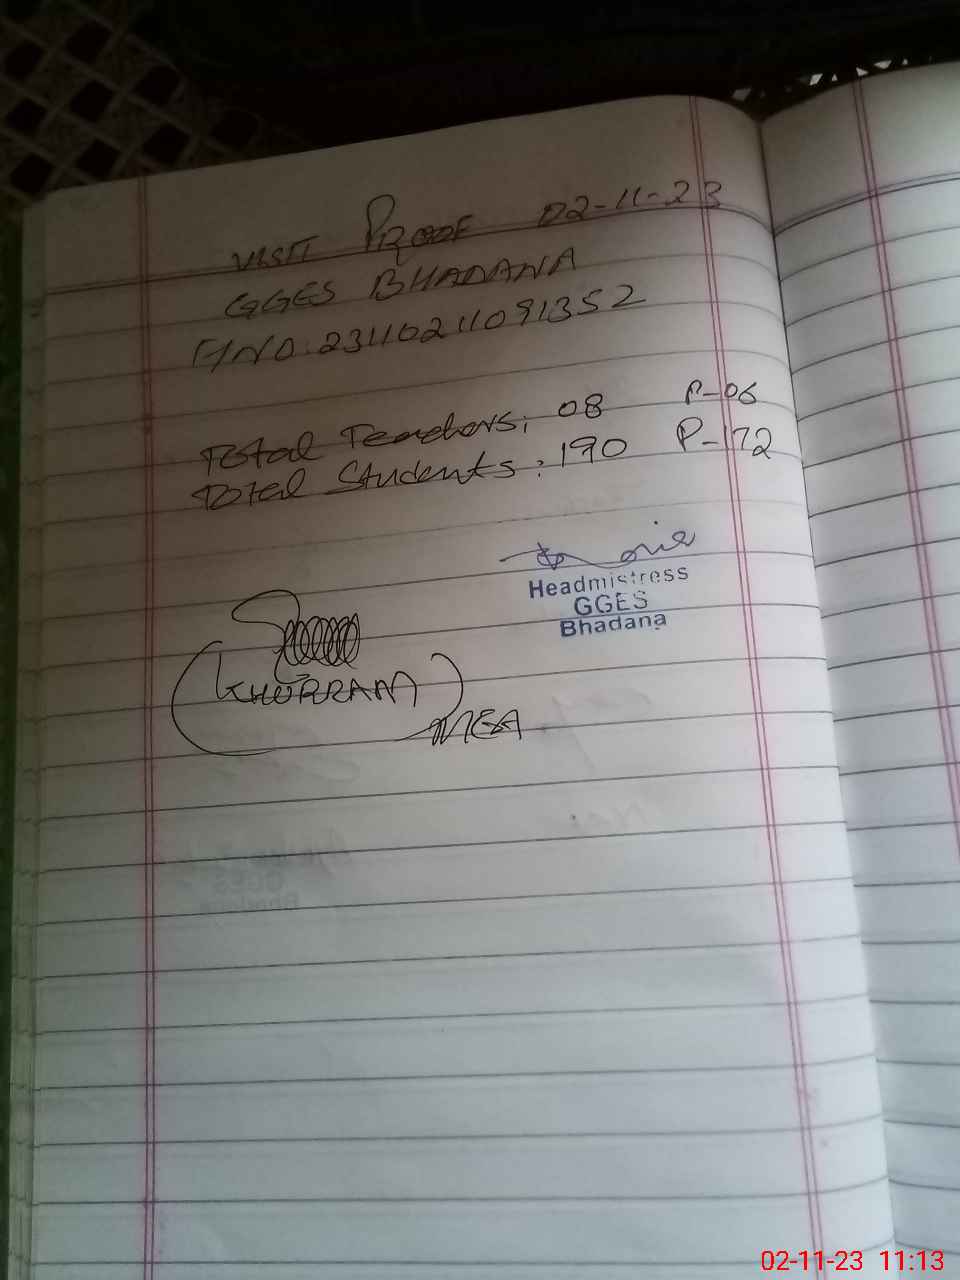 VISIT PROOF 02-11-23
GGES BHADANA
F/NO: 23110211091352
Total Teachers: 08 P-06
Total Students: 190 P-172
Headmistress
GGES
Bhadana
(KHURRAM)
MEA
02-11-23 11:13